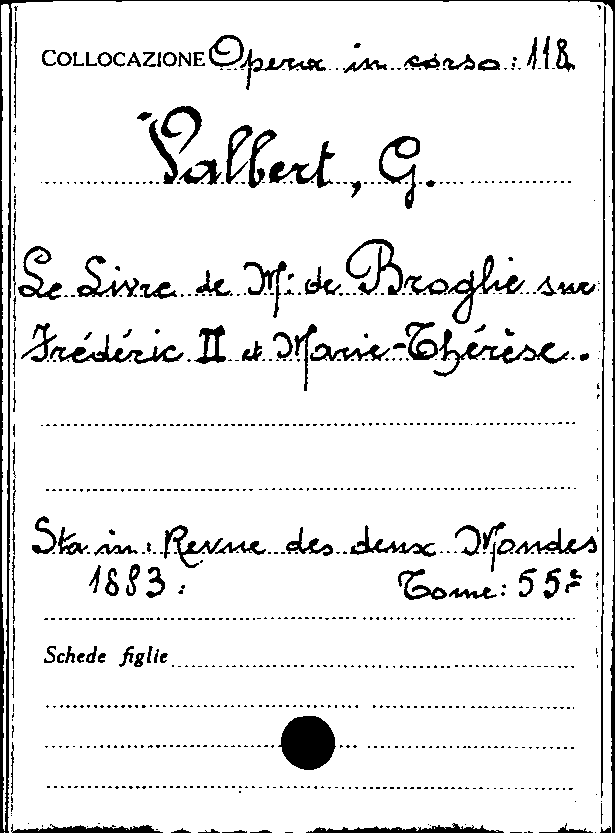 COLLOCAZIONE Opera in corso: 118
Valbert, G.
Le Livre de Mr: de Broglie sur
Frédéric II et Marie-Thérèse.
Sta in: Revue des deux Mondes
1883: Tome: 55e
Schede figlie